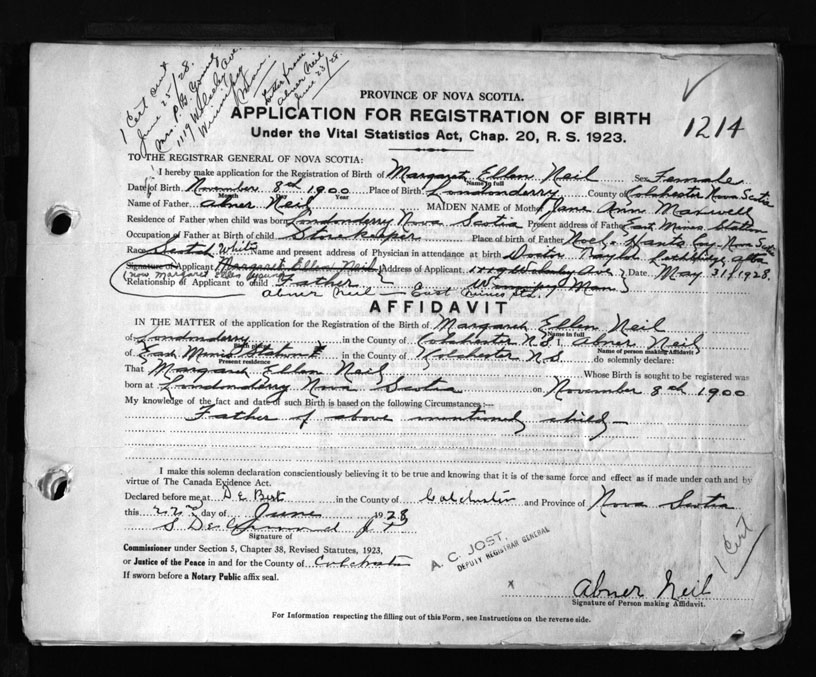 1 Cert sent
June 25/28.
Mrs. P. B.
1119 Ave.
Winnipeg
Man.
Letter from
Abner Neil
June 23/28.
PROVINCE OF NOVA SCOTIA.
APPLICATION FOR REGISTRATION OF BIRTH
Under the Vital Statistics Act, Chap. 20, R. S. 1923.
1214
TO THE REGISTRAR GENERAL OF NOVA SCOTIA:
I hereby make application for the Registration of Birth of Margaret Ellen Neil Sex Female
Name in full
Date of Birth November 8th 1900 Place of Birth Londonderry County of Colchester Nova Scotia
Month Day Year
Name of Father Abner Neil MAIDEN NAME of Mother Jane Ann Maxwell
Residence of Father when child was born Londonderry Nova Scotia Present address of Father East Mines Station
Occupation of Father at Birth of child Storekeeper Place of birth of Father Noel Hants Coy. Nova Scotia
Race Scotch White Name and present address of Physician in attendance at birth Doctor Lethbridge Alta
Signature of Applicant Margaret Ellen Neil Address of Applicant 1119 Ave Date May 31st 1928.
(now Margaret Ellen
Relationship of Applicant to child Father Winnipeg Man
Abner Neil — East Mines Sta.
AFFIDAVIT
IN THE MATTER of the application for the Registration of the Birth of Margaret Ellen Neil
Name in full
of Londonderry in the County of Colchester N.S. I, Abner Neil
Birth place Name of person making Affidavit
of East Mines Station in the County of Colchester N.S. do solemnly declare:
Present residence
That Margaret Ellen Neil Whose Birth is sought to be registered was
born at Londonderry Nova Scotia on November 8th 1900
My knowledge of the fact and date of such Birth is based on the following Circumstances:—
Father of above mentioned child —
I make this solemn declaration conscientiously believing it to be true and knowing that it is of the same force and effect as if made under oath and by
virtue of The Canada Evidence Act.
Declared before me at De Bert in the County of Colchester and Province of Nova Scotia
this 22nd day of June 1928
S J P
Signature of
Commissioner under Section 5, Chapter 38, Revised Statutes, 1923,
or Justice of the Peace in and for the County of Colchester
If sworn before a Notary Public affix seal.
A. C. JOST.
DEPUTY REGISTRAR GENERAL
1 Cert
x Abner Neil
Signature of Person making Affidavit.
For Information respecting the filling out of this Form, see Instructions on the reverse side.